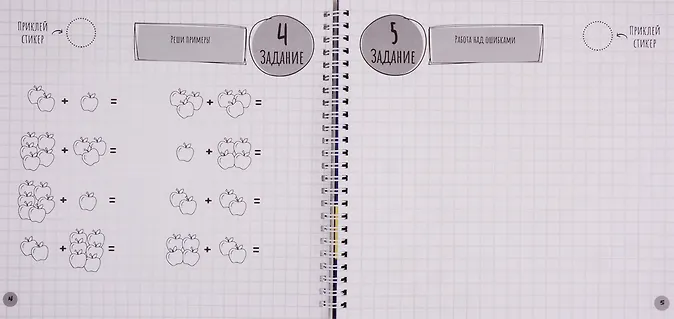 Приклей
стикер
Реши примеры
4
Задание
+ =
+ =
+ =
+ =
+ =
+ =
+ =
+ =
4
5
Задание
Работа над ошибками
Приклей
стикер
5